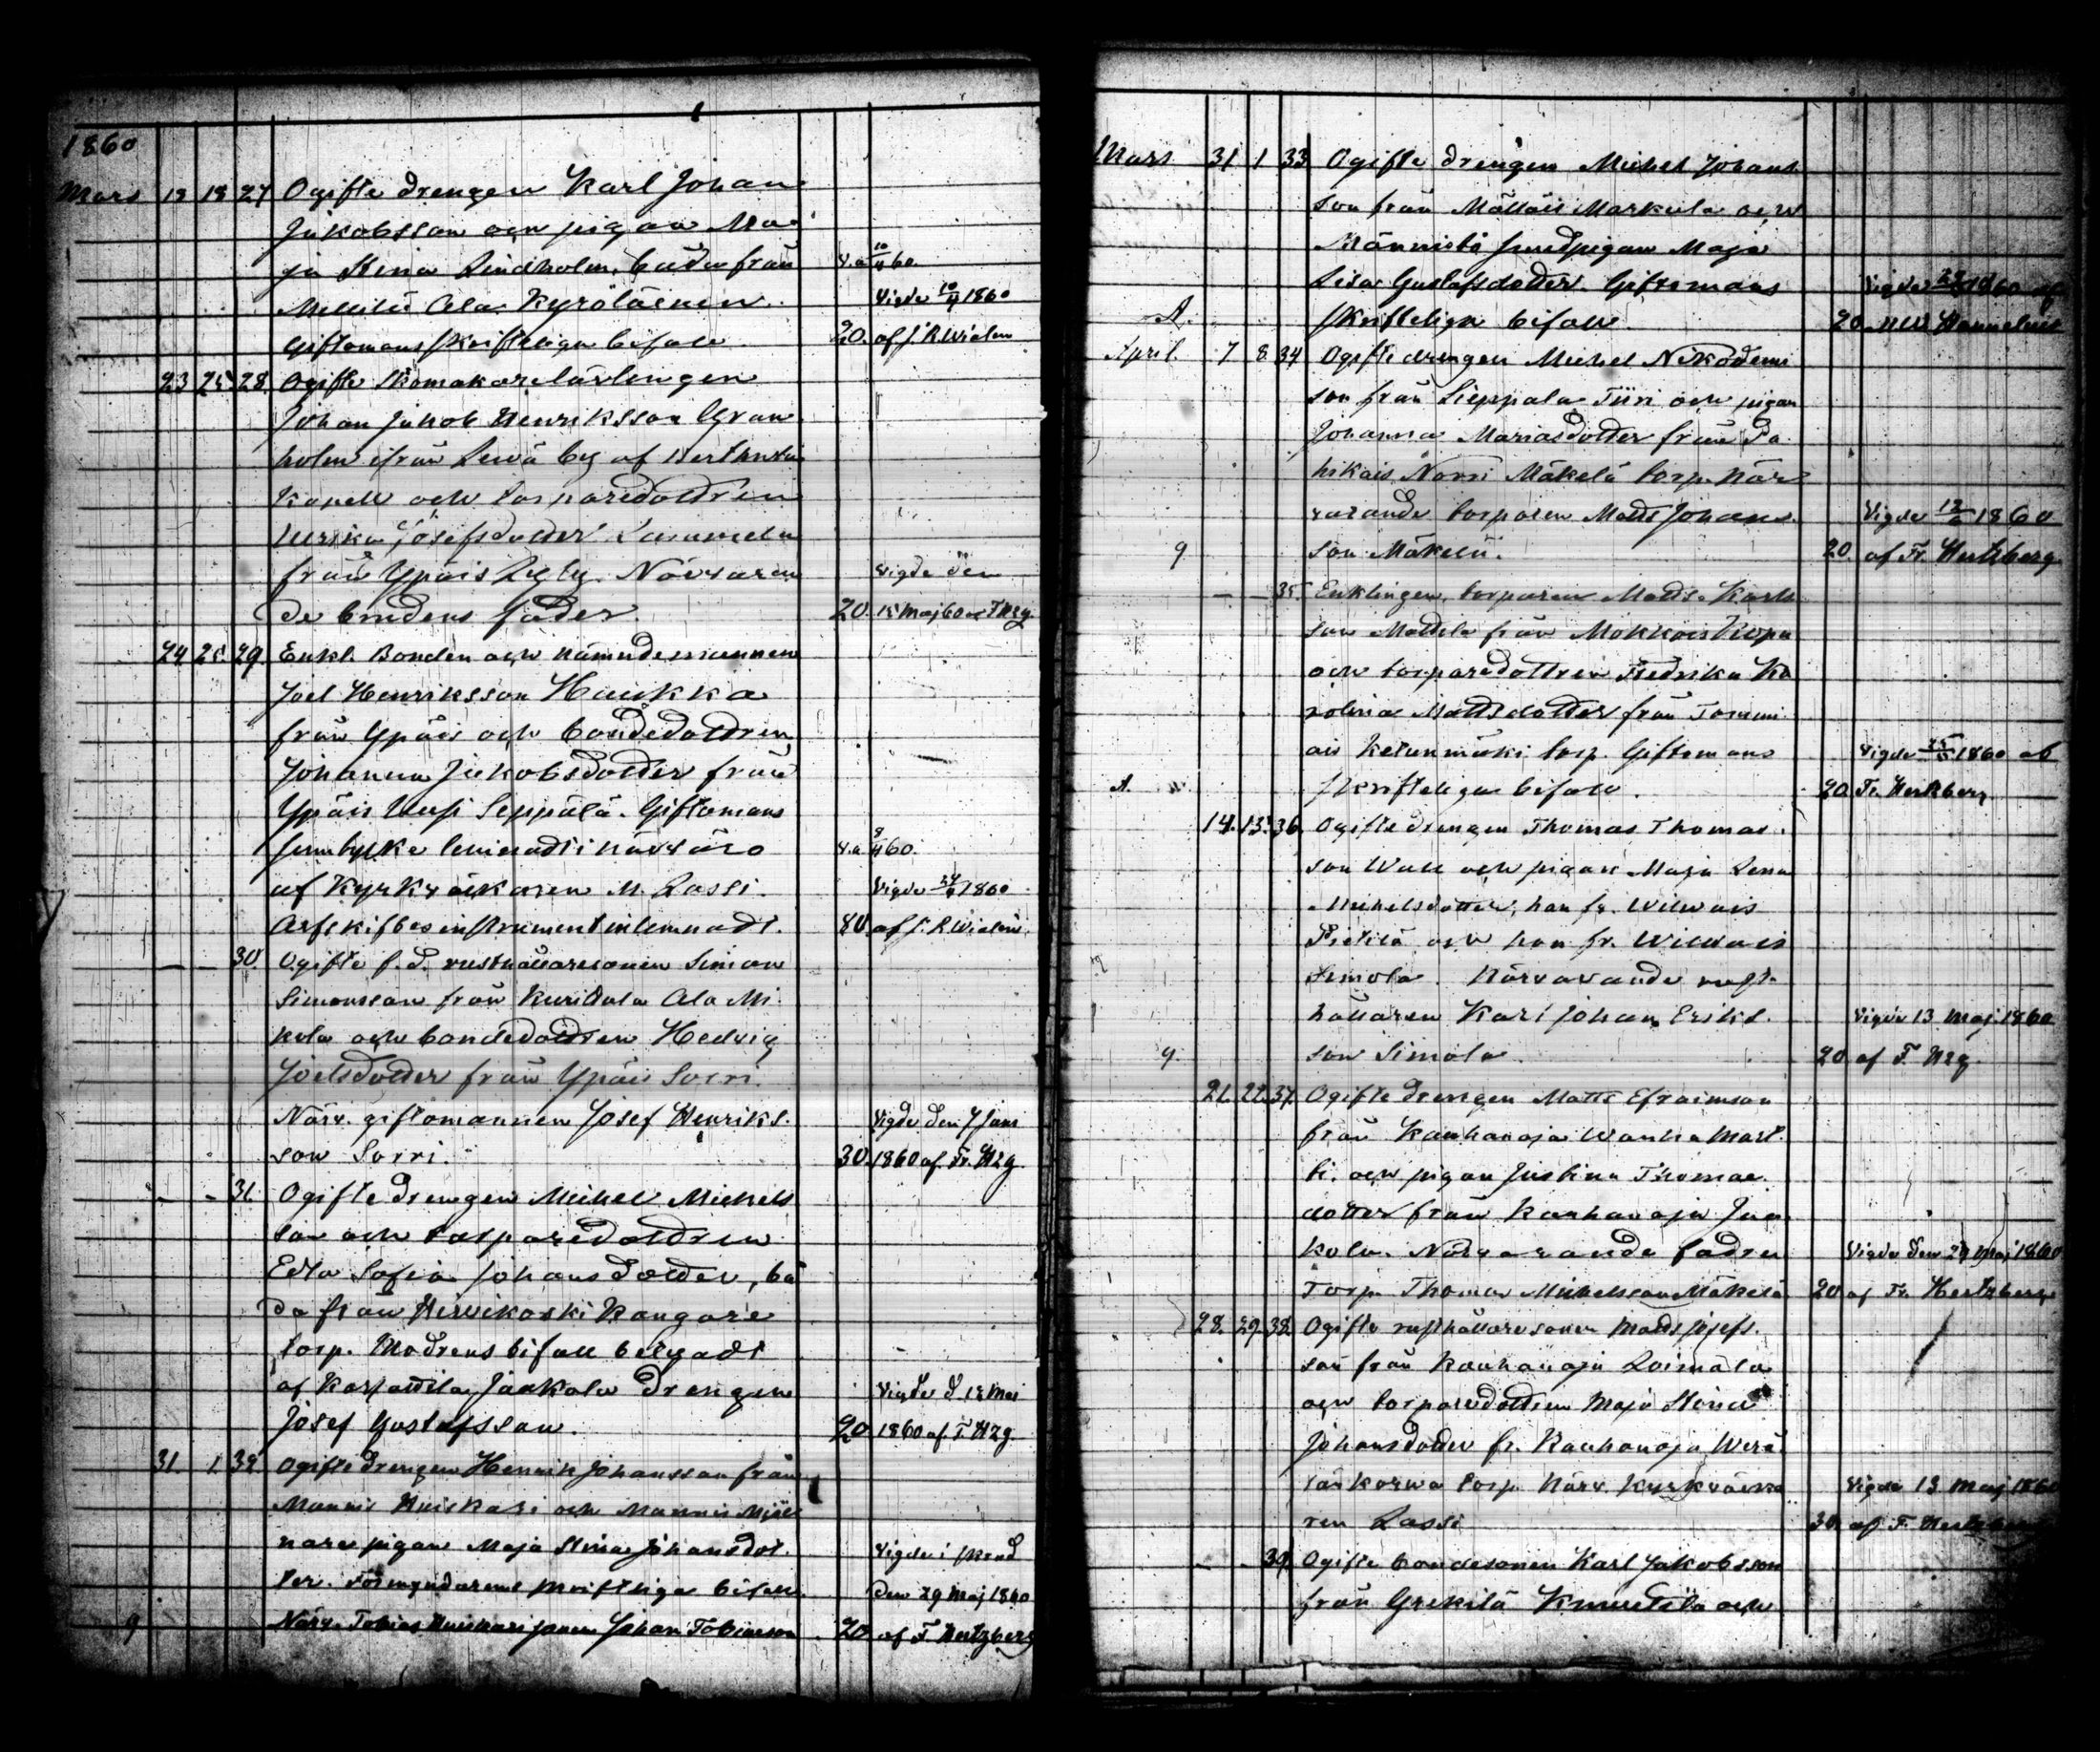 1860
Mars 18 18 27 Ogifte drengen Karl Johan
Jakobsson och pigan Ma-
ja Stina Lindholm, båda från
Mellilä Ala Kyröläinen.
Giftomans skriftliga bifall.
V. a 10/4 60.
Vigde 10/4 1860
20. af J. R. Widen
23 25 28. Ogifte Skomakarelärlingen
Johan Jakob Henriksson Gran-
holm ifrån Lewä by af
Kapell och torparedottren
Ulrika Josefsdotter Lammela
från Ypäis Levy. Närvaran
de brudens fader.
Vigde den
20. 15 Maj 60 af F Hzg
24 25 29. Enkl. Bonden och nämndemannen
Joel Henriksson Haukka
från Ypäis och bondedottren
Johanna Jakobsdotter från
Ypäis Uusi Seppälä. Giftomans
samtycke lemnadt i närvaro
af Kyrkväktaren M. Lassi.
Arfskiftesinstrument inlemnadt.
V. a 8/4 60.
Vigde 24/4 1860
80. af J. R. Widen
— — 30. Ogifte f. d. rusthållaresonen Simon
Simonsson från Kurittula Ala Mi-
kola och bondedottren Hedvig
Joelsdotter från Ypäis Sorri.
Närv. giftomannen Josef Henriks-
son Sorri.
Vigde den 7 Juni
30. 1860 af Fr. Hzg
— — 31. Ogifte drengen Michel Michels
son och torparedottren
Eda Sofia Johansdotter, bå
da från Hirvikoski Kangare
torp. Modrens bifall betygadt
af Korjattila Jaakola drengen
Josef Gustafsson.
Vigde d. 13 Maj
20 1860 af F Hzg
31. 1. 32. Ogifte drengen Henrik Johansson från
Mannis Huiskari och Mannis Mjöl
nare pigan Maja Stina Johansdot-
ter. Förmyndarens skriftliga bifall.
Närv. Tobias Huiskari sonen Johan Tobiasson
Vigde i
den 29 Maj 1860
20 af F Hertzberg
9
Mars 31 1 33 Ogifte drengen Michel Johans-
son från Mälläis Markula och
Männistö pigan Maja
Lisa Gustafsdotter. Giftomans
A. skriftliga bifall.
Vigde 1860 af
20
April. 7 8 34 Ogifte drengen Michel Nikodemi
son från Sieppala Tiiri och pigan
Johanna Mariasdotter från Pa-
hikais Norri Mäkelä torp. När
varande torparen Matts Johans-
9 son Mäkelä.
Vigde 1860
20. af Fr. Hertzberg
— — 35. Enklingen, torparen Matts Karls
son Mattila från Mokkois
och torparedottren Fredrika Ka
rolina Mattsdotter från Tammi
ais Ketunmäki torp. Giftomans
A. skriftliga bifall.
Vigde 1860 af
20 Fr. Hertzberg
14. 15. 36. Ogifte drengen Thomas Thomas-
son Wall och pigan Maja Lena
Michelsdotter, han fr. Wilwais
Pietilä och hon fr. Wilwais
Simola. Närvarande rust-
hållaren Karl Johan Eriks-
9. son Simola.
Vigde 13 Maj 1860
20 af F. Hzg.
21. 22. 37. Ogifte drengen Matts Efraimson
från Kauhanoja Wanha Mart-
ti. och pigan Justina Thomae-
dotter från Kauhanoja Jaa-
kola. Närvarande fadren
Torp. Thomas Michelsson Mäkelä
Vigde den 29 Maj 1860
20 af Fr. Hertzberg
28. 29. 38. Ogifte rusthållaresonen Matts Josefs-
son från Kauhanoja Loimala
och torparedottren Maja Stina
Johansdotter fr. Kauhanoja
torp. Närv. Kyrkväkta
ren Lassi
Vigde 13 Maj 1860
30. af F. Hertzberg
— — 39. Ogifte bondesonen Karl Jakobsson
från Grekilä Knuutila och